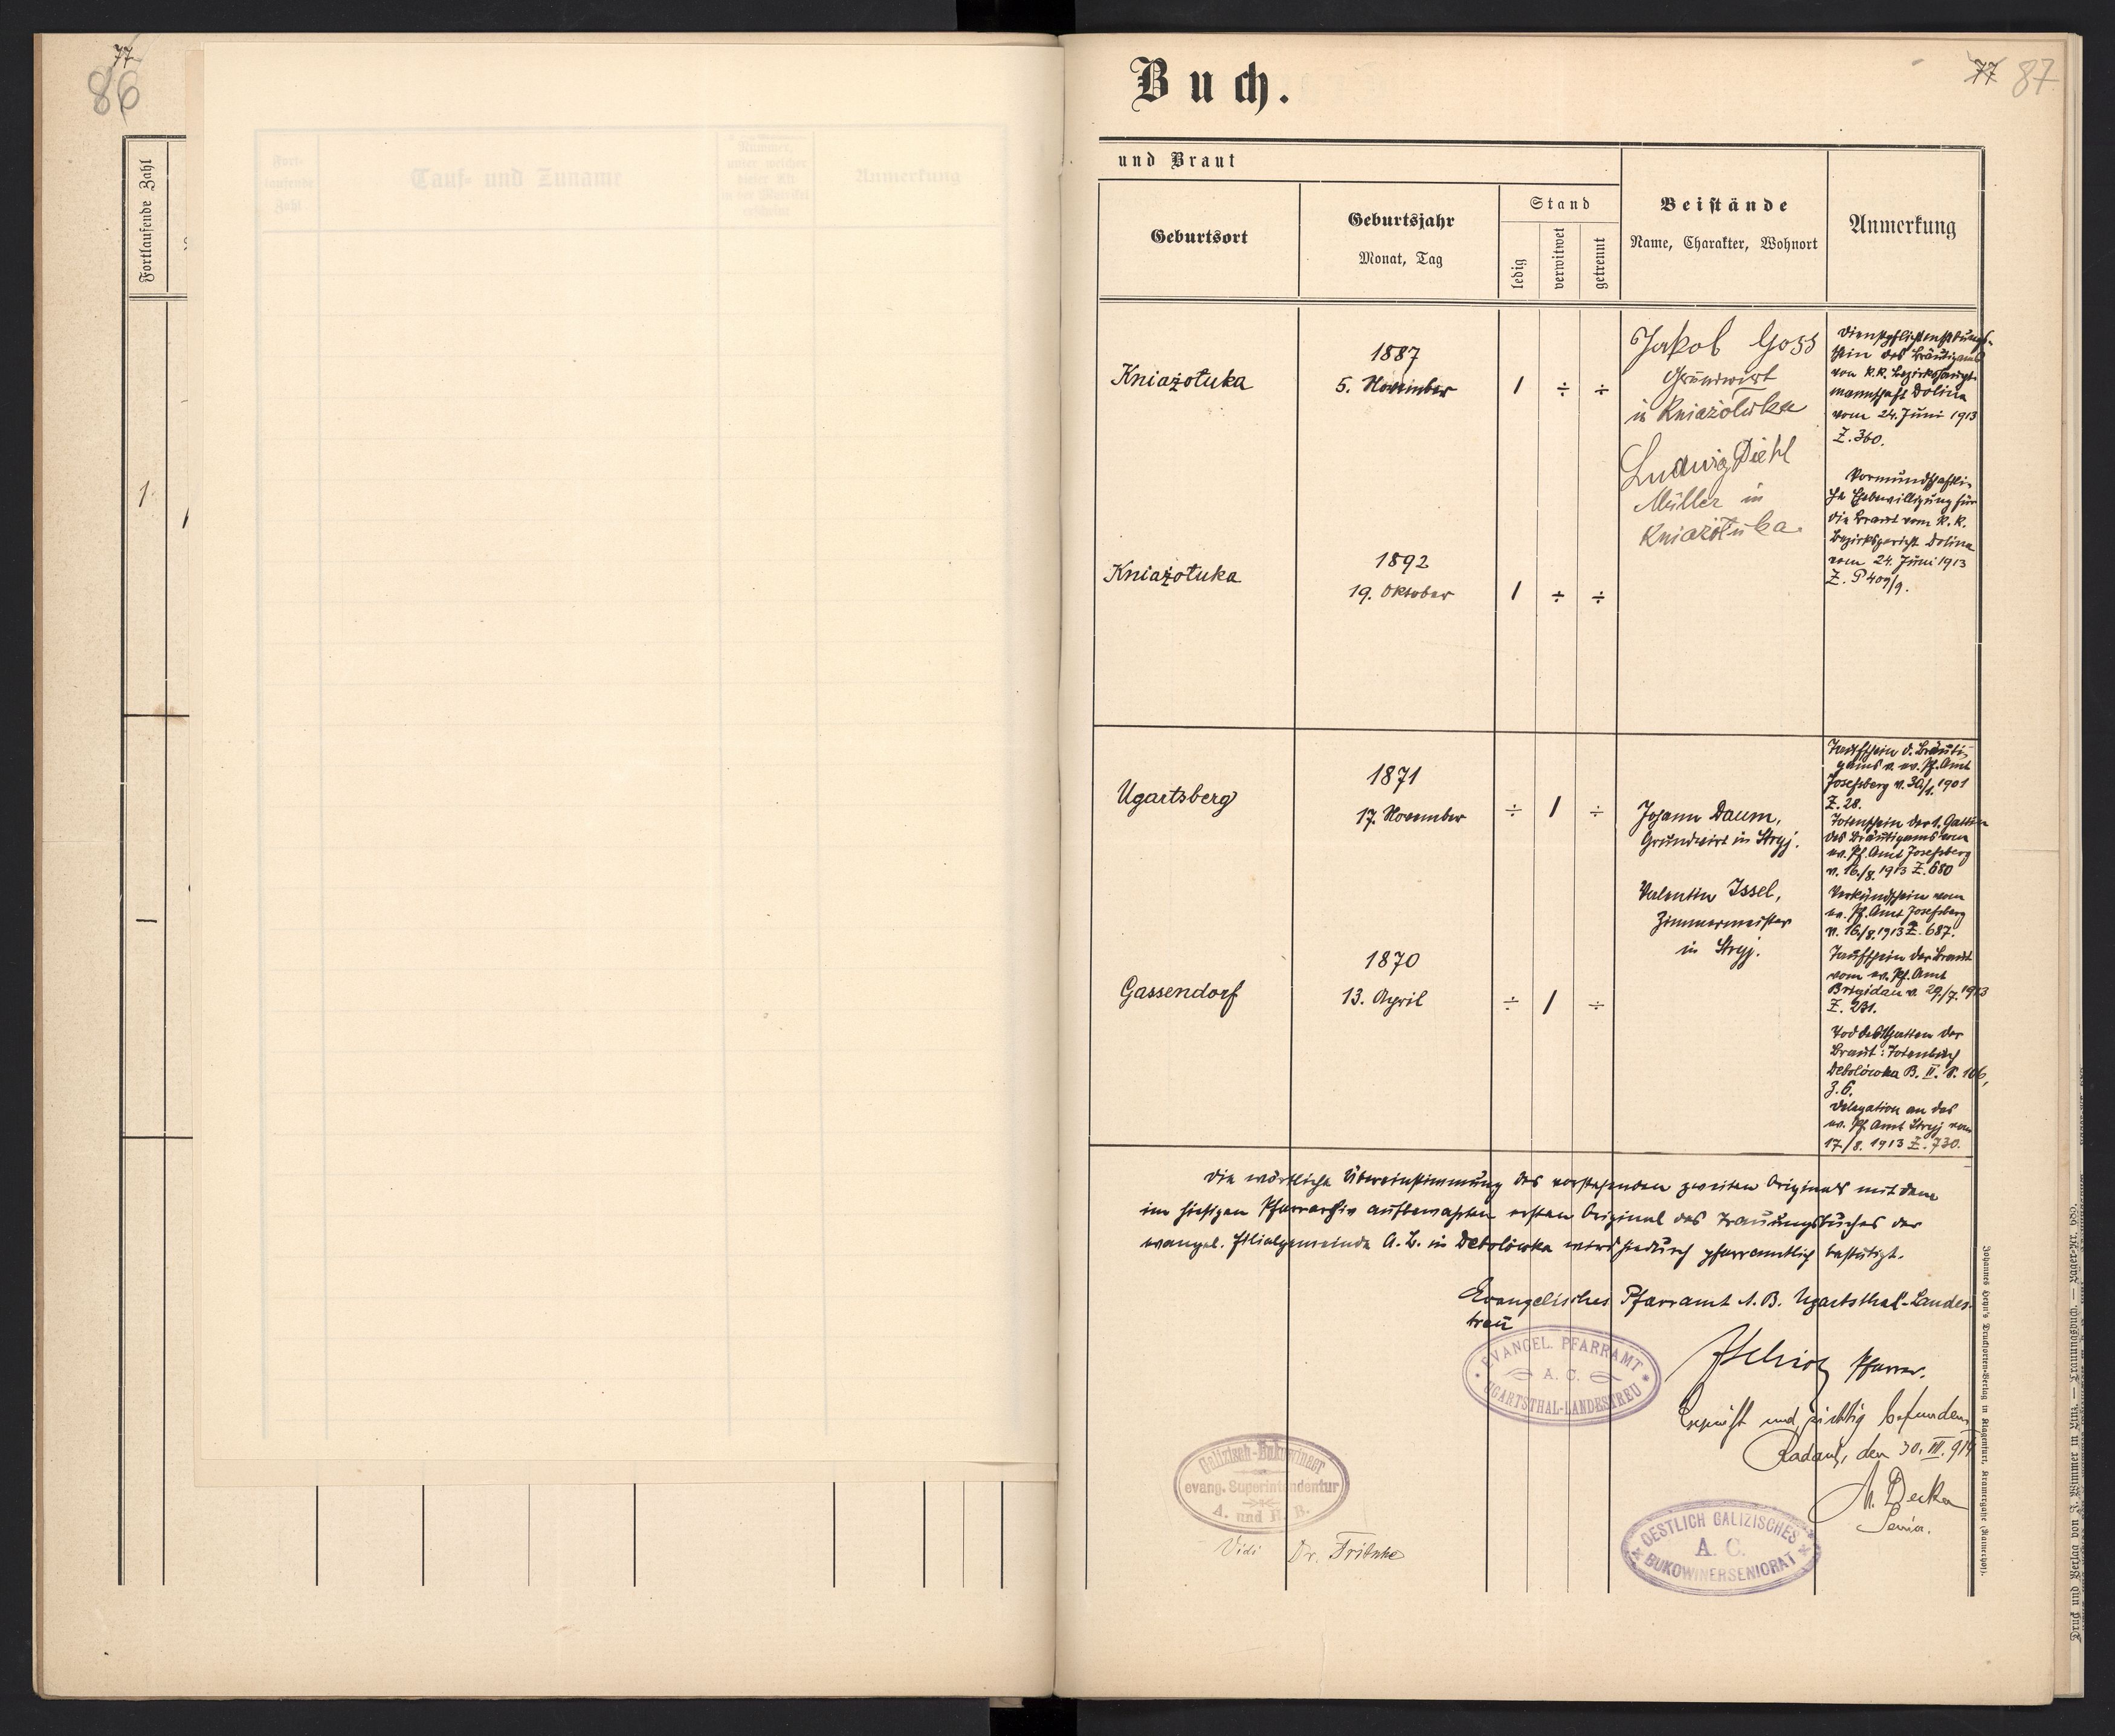 77
86
Fortlaufende Zahl
1.
Fort-
laufende
Zahl
Tauf- und Zuname
Nummer,
unter welcher
dieser Akt
in der Matrikel
erscheint
Anmerkung
Buch.
77 87
und Braut
Geburtsort
Geburtsjahr
Monat, Tag
Stand
ledig
verwitwet
getrennt
Beistände
Name, Charakter, Wohnort
Anmerkung
Kniażołuka
1887
5. November
1 ÷ ÷
Jakob Goss
Grundwirt
in Kniazolówka
Ludwig Diehl
Müller in
Kniażołuka.
Dienstpflichtenthebungs-
schein des Bräutigams
von k. k. Bezirkshaupt-
mannschaft Dolina
vom 24. Juni 1913
Z. 360.
Vormundschaftli-
che Ehebewilligung für
die Braut vom k. k.
Bezirksgericht Dolina
vom 24. Juni 1913
Z. P 409/9.
Kniażołuka
1892
19. Oktober
1 ÷ ÷
Ugartsberg
1871
17. November
÷ 1 ÷
Johann Daum,
Grundwirt in Stryj.
Valentin Issel,
Zimmermeister
in Stryj.
Gassendorf
1870
13. April
÷ 1 ÷
Taufschein d. Bräuti-
gams v. ev. Pf. Amt
Josefsberg v. 30/1. 1901
Z. 28.
Totenschein der 1. Gattin
des Bräutigams vom
ev. Pf. Amt Josefsberg
v. 16./8. 1913 Z. 680
Verkündschein vom
ev. Pf. Amt Josefsberg
v. 16./8. 1913 Z. 687.
Taufschein der Braut
vom ev. Pf. Amt
Brigidau v. 29./7. 1913
Z. 231.
Tod des Gatten der
Braut: Totenbuch
Debolówka B. II. S. 106,
Z. 6.
Delegation an das
ev. Pf. Amt Stryj vom
17./8. 1913 Z. 730.
Die wörtliche Übereinstimmung des vorstehenden zweiten Originals mit dem
im hiesigen Pfarrarchiv aufbewahrten ersten Original des Trauungsbuches der
evangel. Filialgemeinde A. B. in Debolówka wird hiedurch pfarramtlich bestätigt.
Evangelisches Pfarramt A. B. Ugartsthal-Landes-
treu
EVANGEL. PFARRAMT
A. C.
UGARTSTHAL-LANDESTREU
Pfarrer.
Geprüft und richtig befunden
Radautz, den 30. III. 914
Galizisch-Bukowinaer
evang. Superintendentur
A. und H. B.
Vidi Dr. Fritsche
Senior.
OESTLICH GALIZISCHES
A. C.
BUKOWINERSENIORAT
Johannes Heyn's Drucksorten-Verlag in Klagenfurt, Kramergasse
Druck und Verlag von J. Wimmer in Linz. — Trauungsbuch. — Lager-Nr. 685.